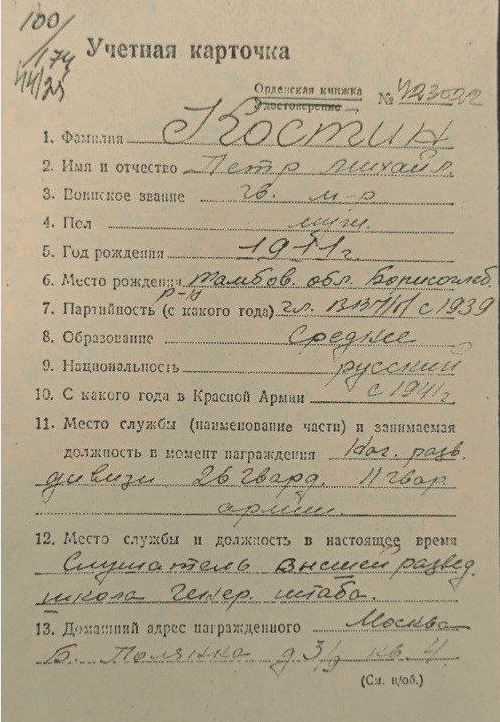 100/174
44/25
Учетная карточка
Орденская книжка
Удостоверение № 423022
1. Фамилия Костин
2. Имя и отчество Петр Михайл.
3. Воинское звание гв. м-р
4. Пол муж.
5. Год рождения 1911 г.
6. Место рождения Тамбов. обл. Борисоглеб.
р-н
7. Партийность (с какого года) чл. ВКП/б/ с 1939
8. Образование Среднее
9. Национальность русский
10. С какого года в Красной Армии с 1941 г
11. Место службы (наименование части) и занимаемая
должность в момент награждения Нач. разв.
дивизи 26 гвард. 11 гвар.
армии.
12. Место службы и должность в настоящее время
Слушатель Высшей развед.
школа Генер. штаба.
13. Домашний адрес награжденного Москва
Б. Полянка д 3/ кв. 4
(См. н/об.)